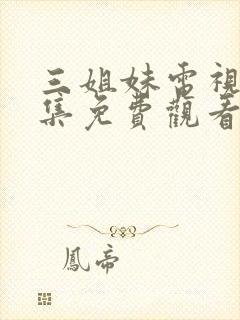 三姐妹電視
集免費觀看
鳳帝